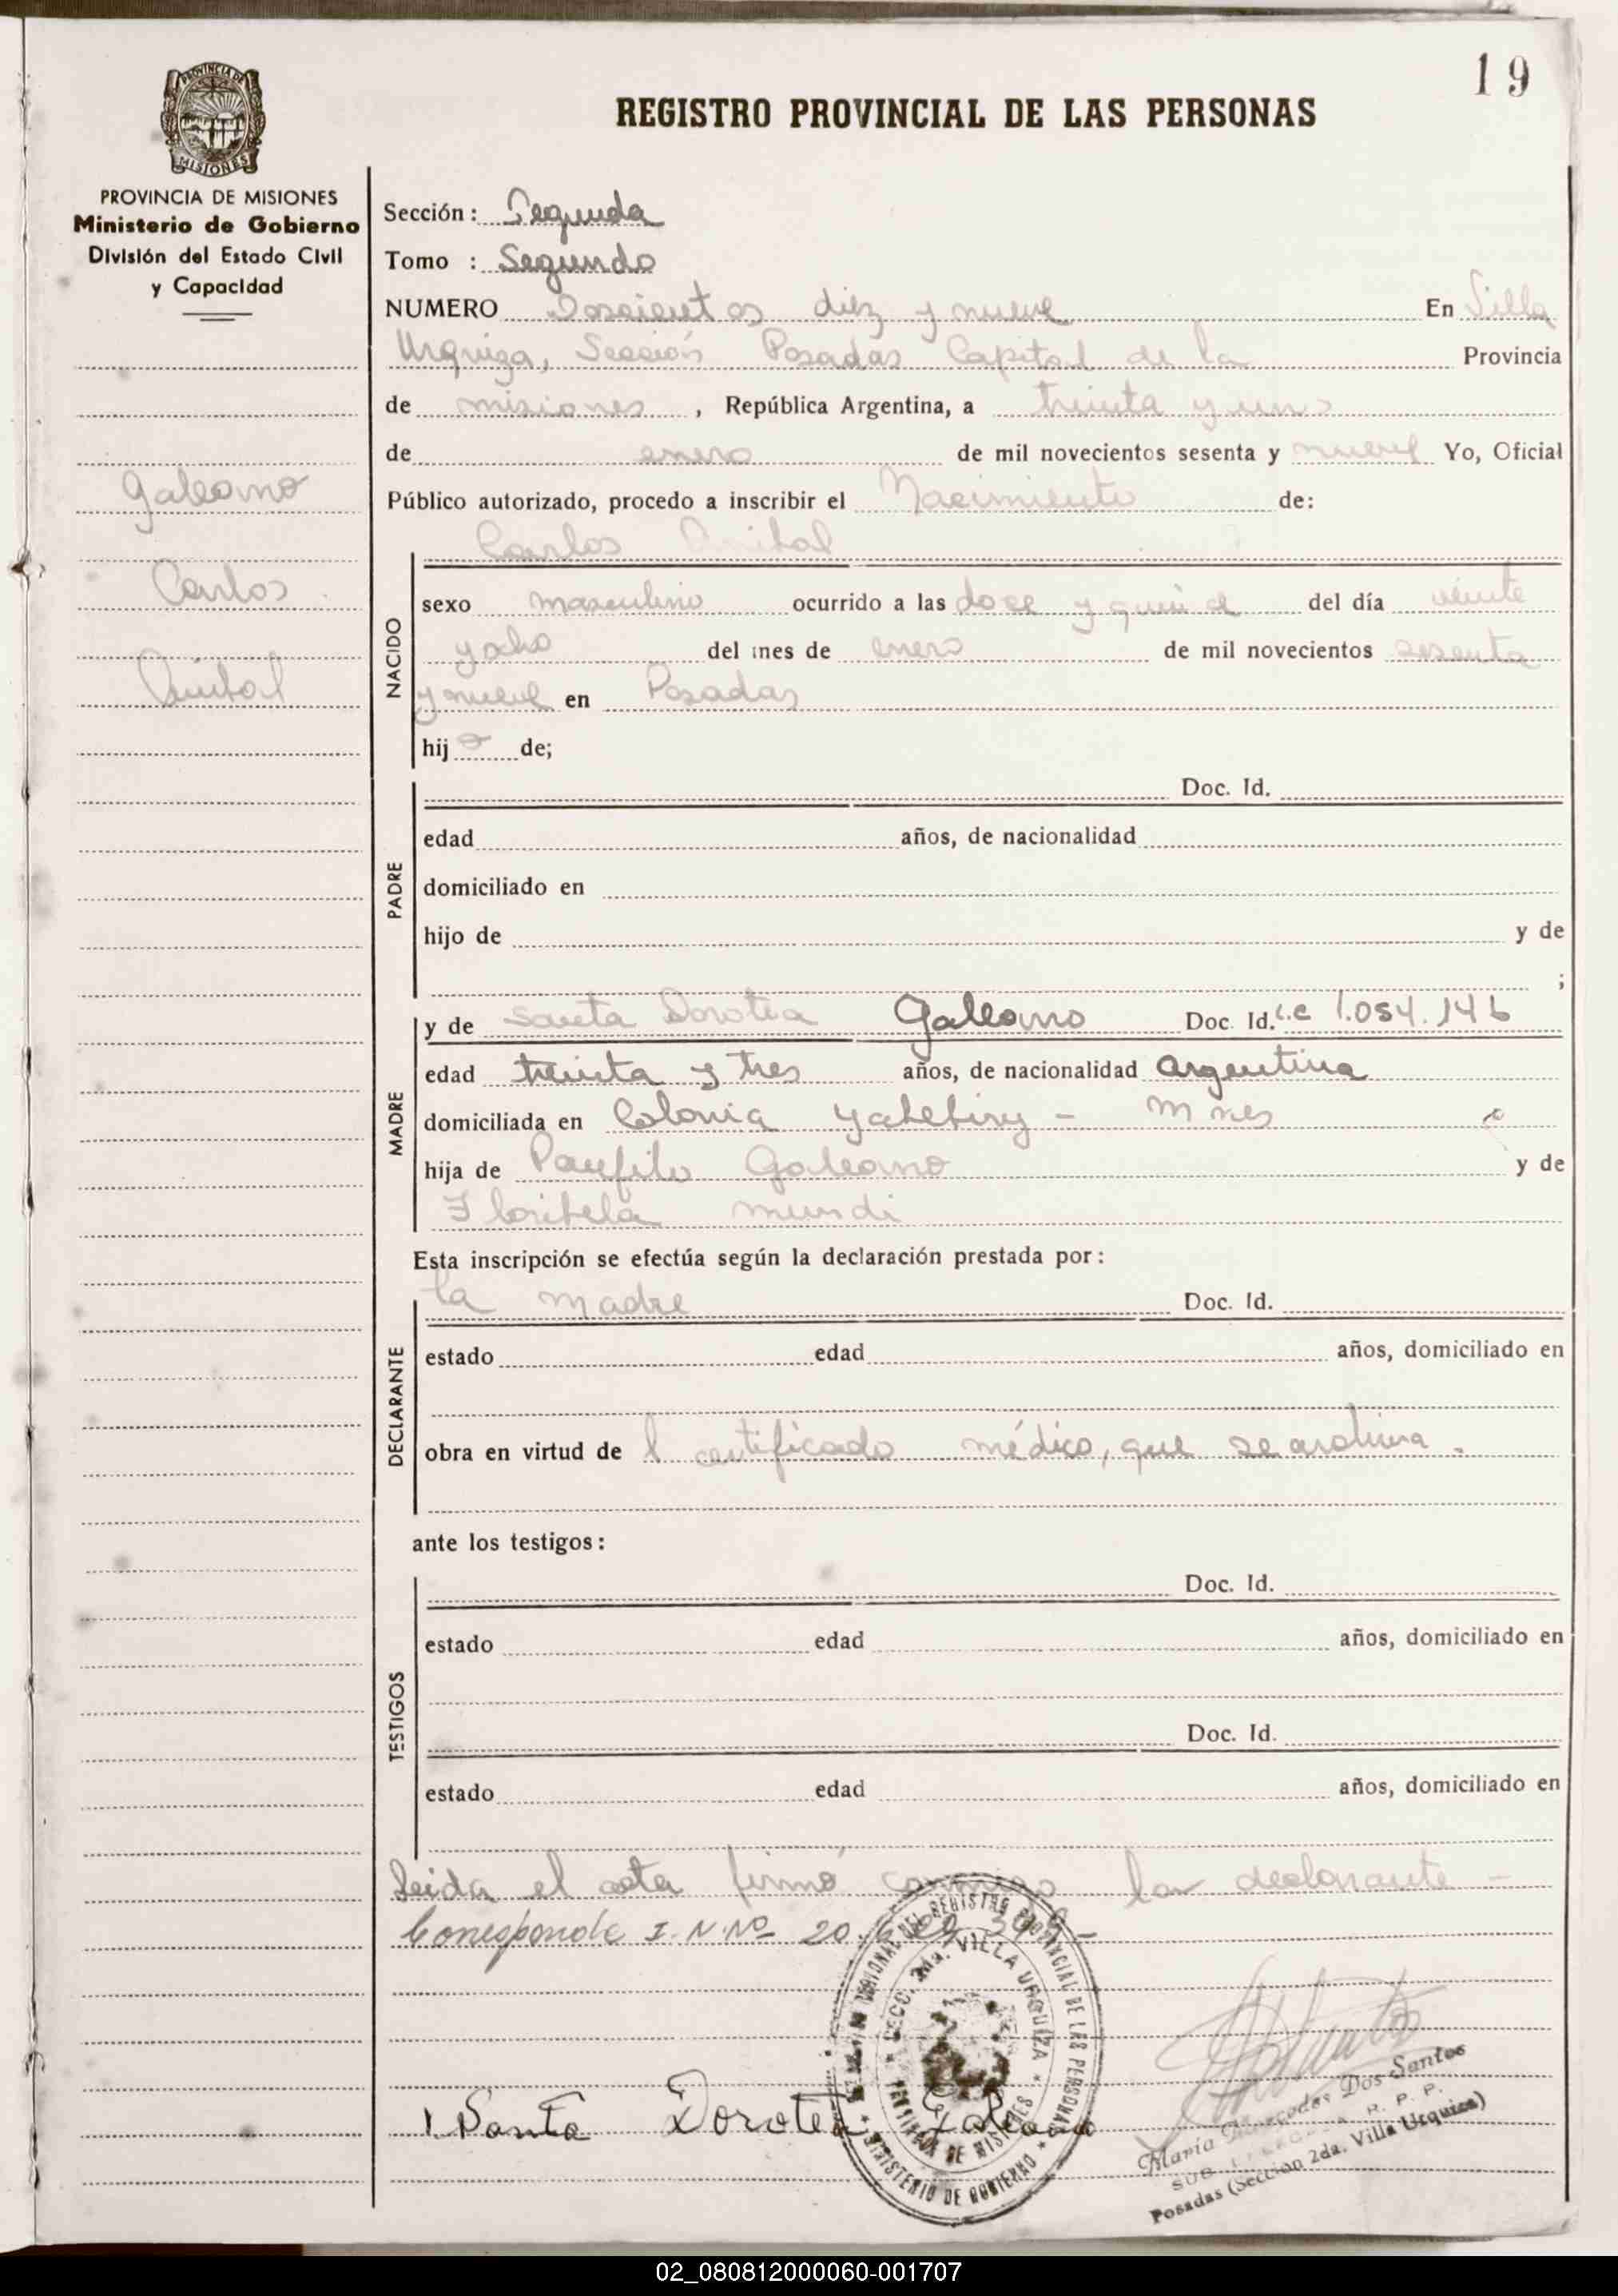 19
PROVINCIA DE
MISIONES
REGISTRO PROVINCIAL DE LAS PERSONAS
PROVINCIA DE MISIONES
Ministerio de Gobierno
División del Estado Civil
y Capacidad
Galeano
Carlos
Anibal
Sección: Segunda
Tomo : Segundo
NUMERO Doscientos diez y nueve En Villa
Urquiza, Sección Posadas Capital de la Provincia
de misiones, República Argentina, a treinta y uno
de enero de mil novecientos sesenta y nueve Yo, Oficial
Público autorizado, procedo a inscribir el Nacimiento de:
Carlos Anibal
NACIDO
sexo masculino ocurrido a las doce y quince del día veinte
y ocho del mes de enero de mil novecientos sesenta
y nueve en Posadas
hijo de;
PADRE
Doc. Id.
edad años, de nacionalidad
domiciliado en
hijo de y de
;
MADRE
y de Santa Dorotea Galeano Doc. Id. L.C 1.054.146
edad treinta y tres años, de nacionalidad Argentina
domiciliada en Colonia Yabebiry - Mnes
hija de Panfilo Galeano y de
Floribela mundi
Esta inscripción se efectúa según la declaración prestada por:
DECLARANTE
la madre Doc. Id.
estado edad años, domiciliado en
obra en virtud del certificado médico, que se archiva.
ante los testigos:
TESTIGOS
Doc. Id.
estado edad años, domiciliado en
Doc. Id.
estado edad años, domiciliado en
Leida el acta firmó conmigo la declarante -
Corresponde I.N.Nº 20.
REGISTRO PROVINCIAL DE LAS PERSONAS
SECC. 2da. VILLA URQUIZA
PROVINCIA DE MISIONES
MINISTERIO DE GOBIERNO
Santa Dorotea Galeano
María Mercedes Dos Santos
R. P. P.
Posadas (Sección 2da. Villa Urquiza)
02_080812000060-001707